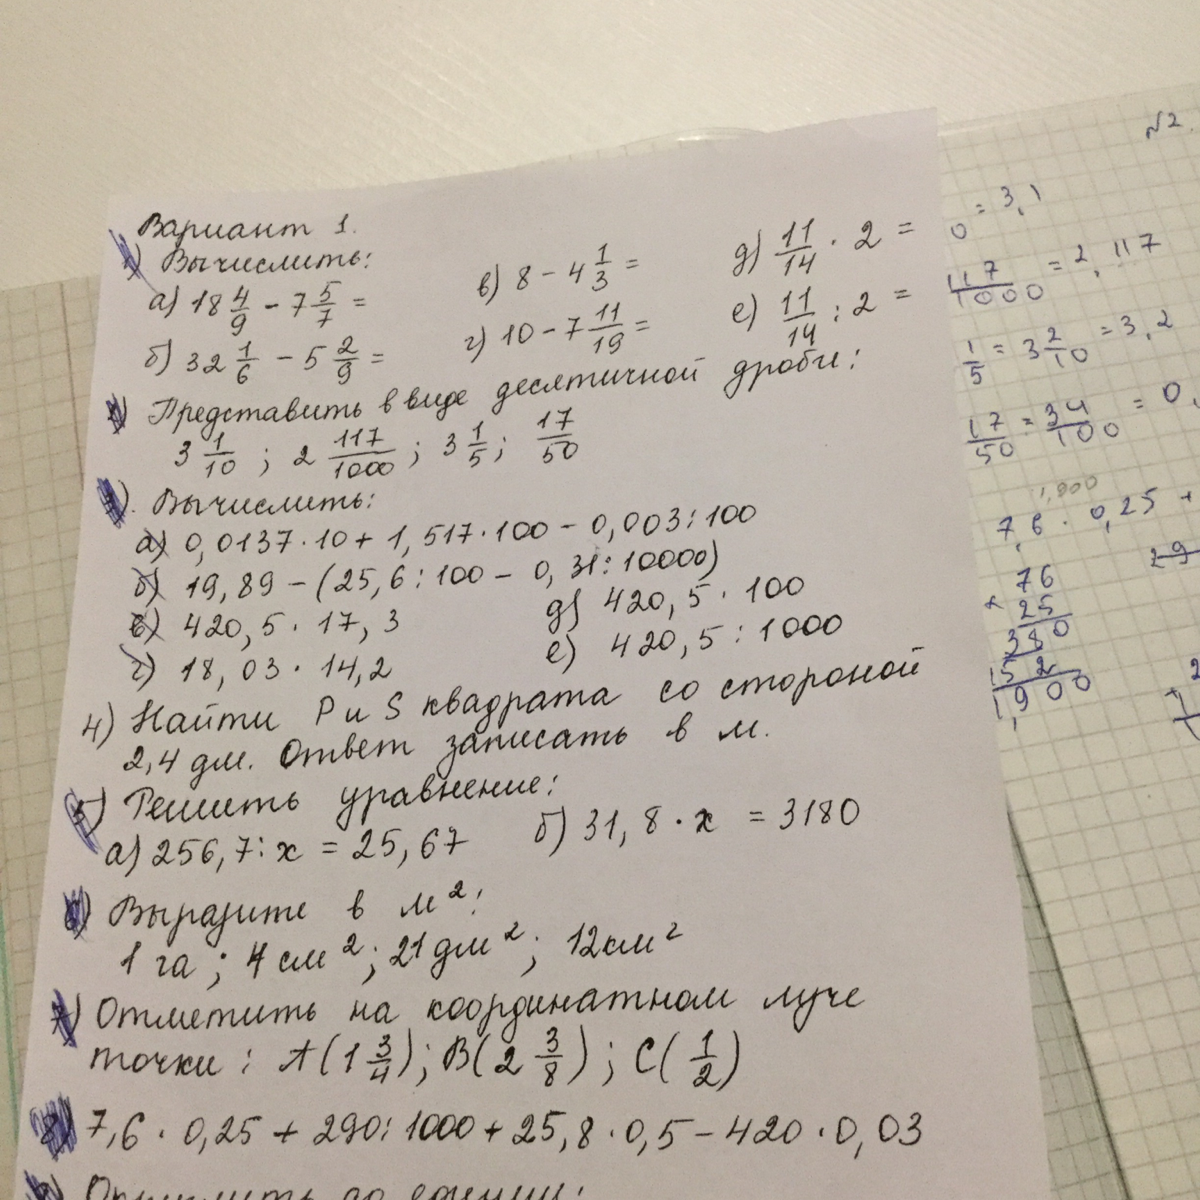 Вариант 1.
1) Вычислить:
а) 18 4/9 - 7 5/7 =
б) 32 1/6 - 5 2/9 =
в) 8 - 4 1/3 =
г) 10 - 7 11/19 =
д) 11/14 · 2 =
е) 11/14 : 2 =
2) Представить в виде десятичной дроби:
3 1/10 ; 2 117/1000 ; 3 1/5 ; 17/50
3). Вычислить:
а) 0,0137·10 + 1,517·100 - 0,003:100
б) 19,89 - (25,6:100 - 0,31:10000)
в) 420,5 · 17,3
г) 18,03 · 14,2
д) 420,5 · 100
е) 420,5 : 1000
4) Найти P и S квадрата со стороной
2,4 дм. Ответ записать в м.
5) Решить уравнение:
а) 256,7 : x = 25,67
б) 31,8 · x = 3180
6) Выразите в м²:
1 га ; 4 см² ; 21 дм² ; 12 км²
7) Отметить на координатном луче
точки : A(1 3/4) ; B(2 3/8) ; C(1/2)
8) 7,6 · 0,25 + 290:1000 + 25,8 · 0,5 - 420 · 0,03
№2.
0 = 3,1
117/1000 = 2,117
1/5 = 3 2/10 = 3,2
17/50 = 34/100 = 0,
1,900
7,6 · 0,25 +
29
× 76
25
380
152
1,900